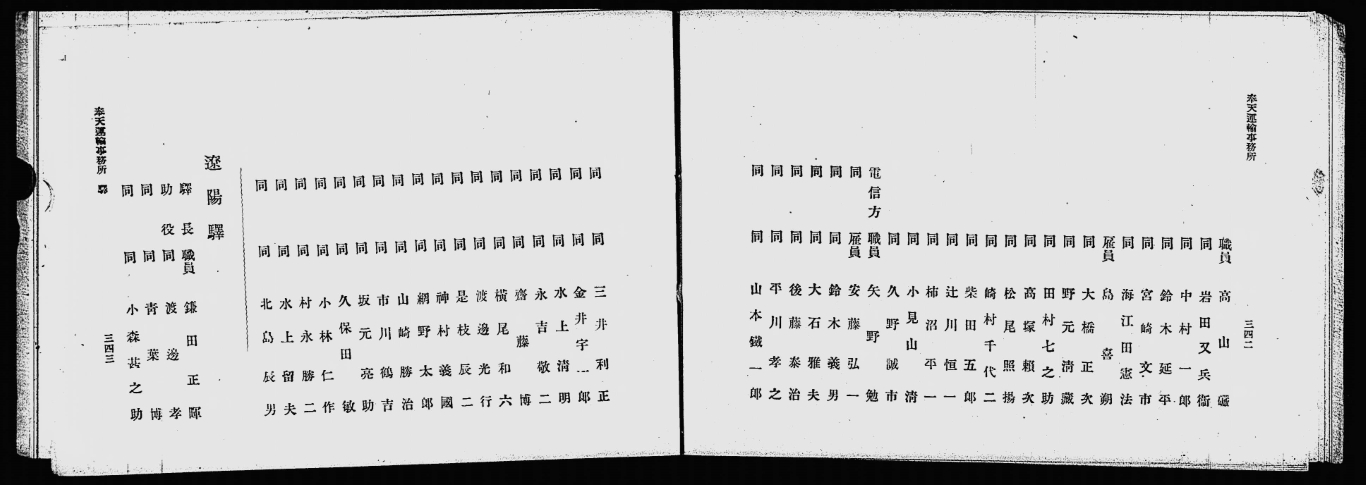 奉天運輸事務所
三四二
職員 高山
同 岩田又兵衞
同 中村一郎
同 鈴木延平
同 宮崎文市
同 海江田憲法
雇員 島喜朔
同 大橋正次
同 野元淸藏
同 田村七之助
同 高塚賴次
同 松尾照揚
同 崎村千代二
同 柴田五郎
同 辻川恒一
同 柿沼平一
同 小見山淸
同 久野誠市
電信方 職員 矢野勉
同 雇員 安藤弘一
同 同 鈴木義男
同 同 大石雅夫
同 同 後藤泰治
同 同 平川孝之
同 同 山本鐵一郎
同 同 三井利正
同 同 金井宇一郎
同 同 水上淸明
同 同 永吉敬二
同 同 齋藤博
同 同 橫尾和六
同 同 渡邊光行
同 同 是枝辰二
同 同 神村義國
同 同 網野太郎
同 同 山崎勝治
同 同 市川鶴吉
同 同 坂元亮助
同 同 久保田敏
同 同 小林仁作
同 同 村永勝二
同 同 水上留夫
同 同 北島辰男
遼陽驛
驛長 職員 鎌田正暉
助役 同 渡邊孝
同 同 靑葉博
同 同 小森甚之助
奉天運輸事務所 驛
三四三